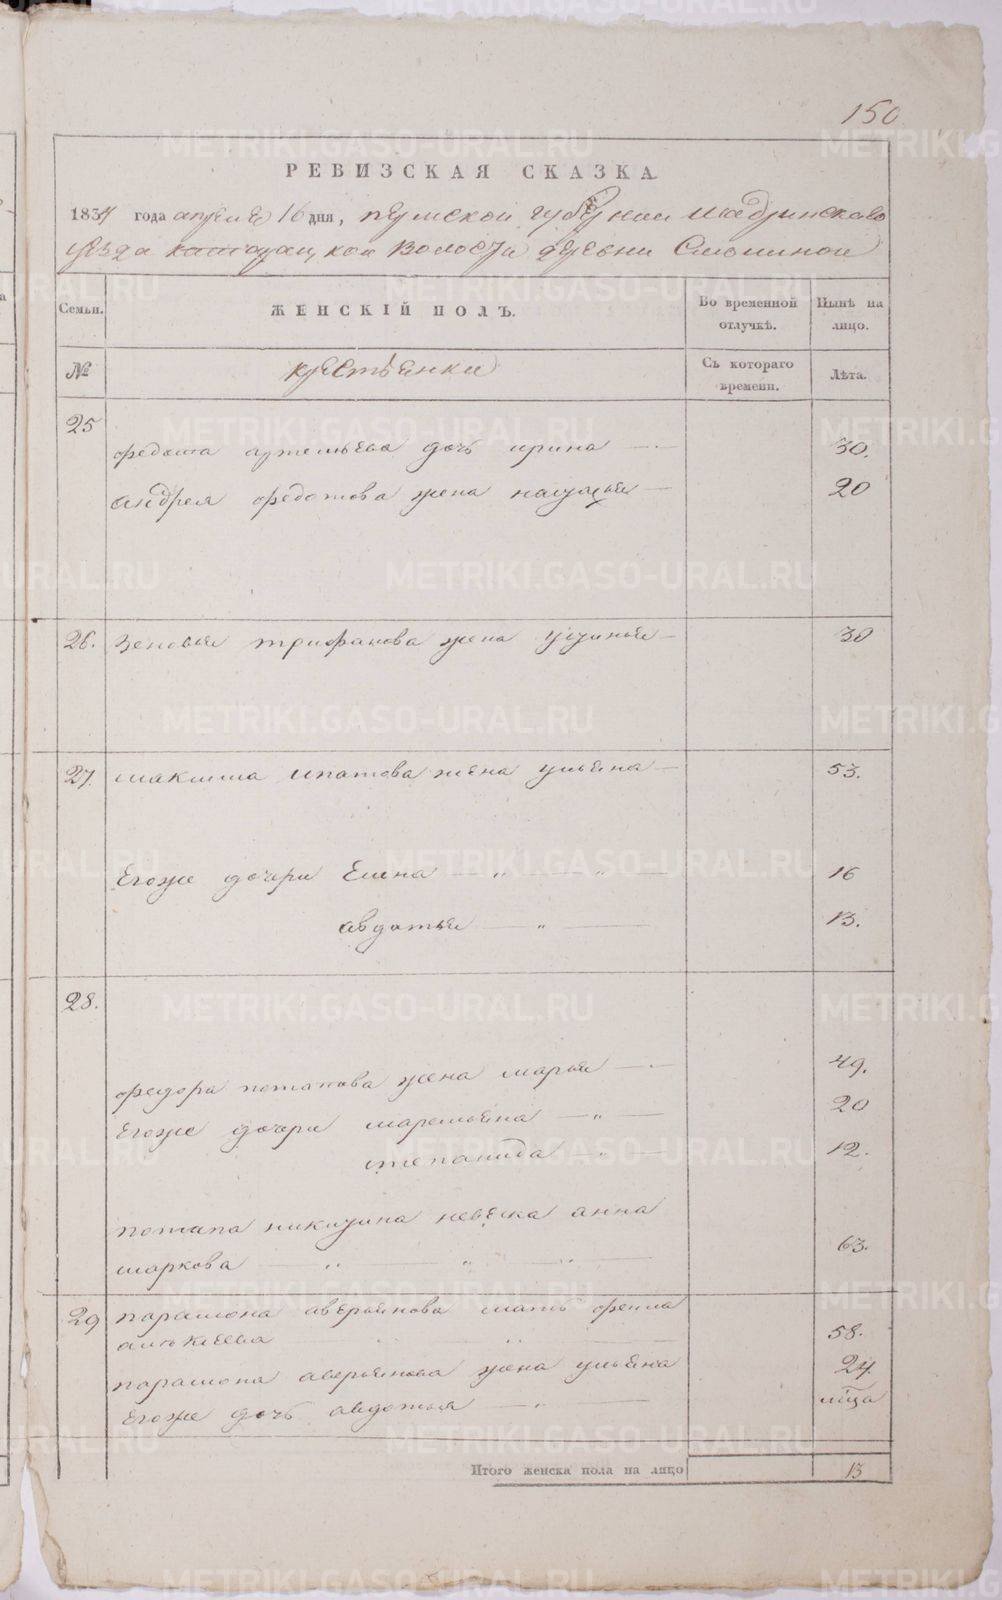 150
РЕВИЗСКАЯ СКАЗКА
1834 года апреля 16 дня, пермской губернии шадринскаго
уезда волости деревни Смолиной
Семьи. ЖЕНСКІЙ ПОЛЪ. Во временной отлучкѣ. Нынѣ на лицо.
№ крестьенки Съ котораго времени. Лѣта.
25
федота артемьева дочь ирина 30.
андрея федотова жена наталья 20
26. Зеновья трифанова жена устинья 30
27. максима ипатова жена ульена 53.
Егоже дочери Елена „ „ 16
авдотья „ 13.
28.
федора потапова жена марья 49.
Егоже дочери маремьена „ 20
степанида „ 12.
потапа никитина невеска анна
маркова „ „ „ 63.
29 парамона аверьенова мать фекла
„ „ 58.
парамона аверьенова жена ульена 24.
Егоже дочь авдотья „ м͠ца
Итого женска пола на лицо 13
METRIKI.GASO-URAL.RU